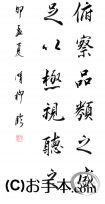 俯察品類之盛
足以極視聽之
卯孟夏 臨
(C)お手本.com